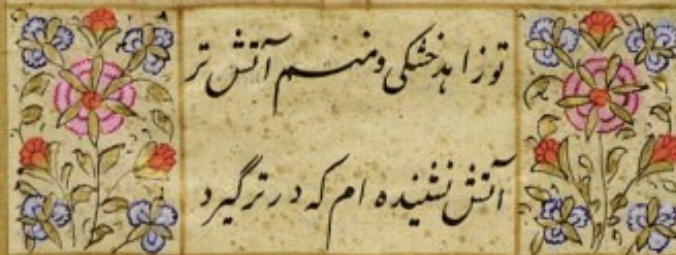 تو زاهد خشکی و منم آتش تر
آتش نشنیده ام که در تر گیرد